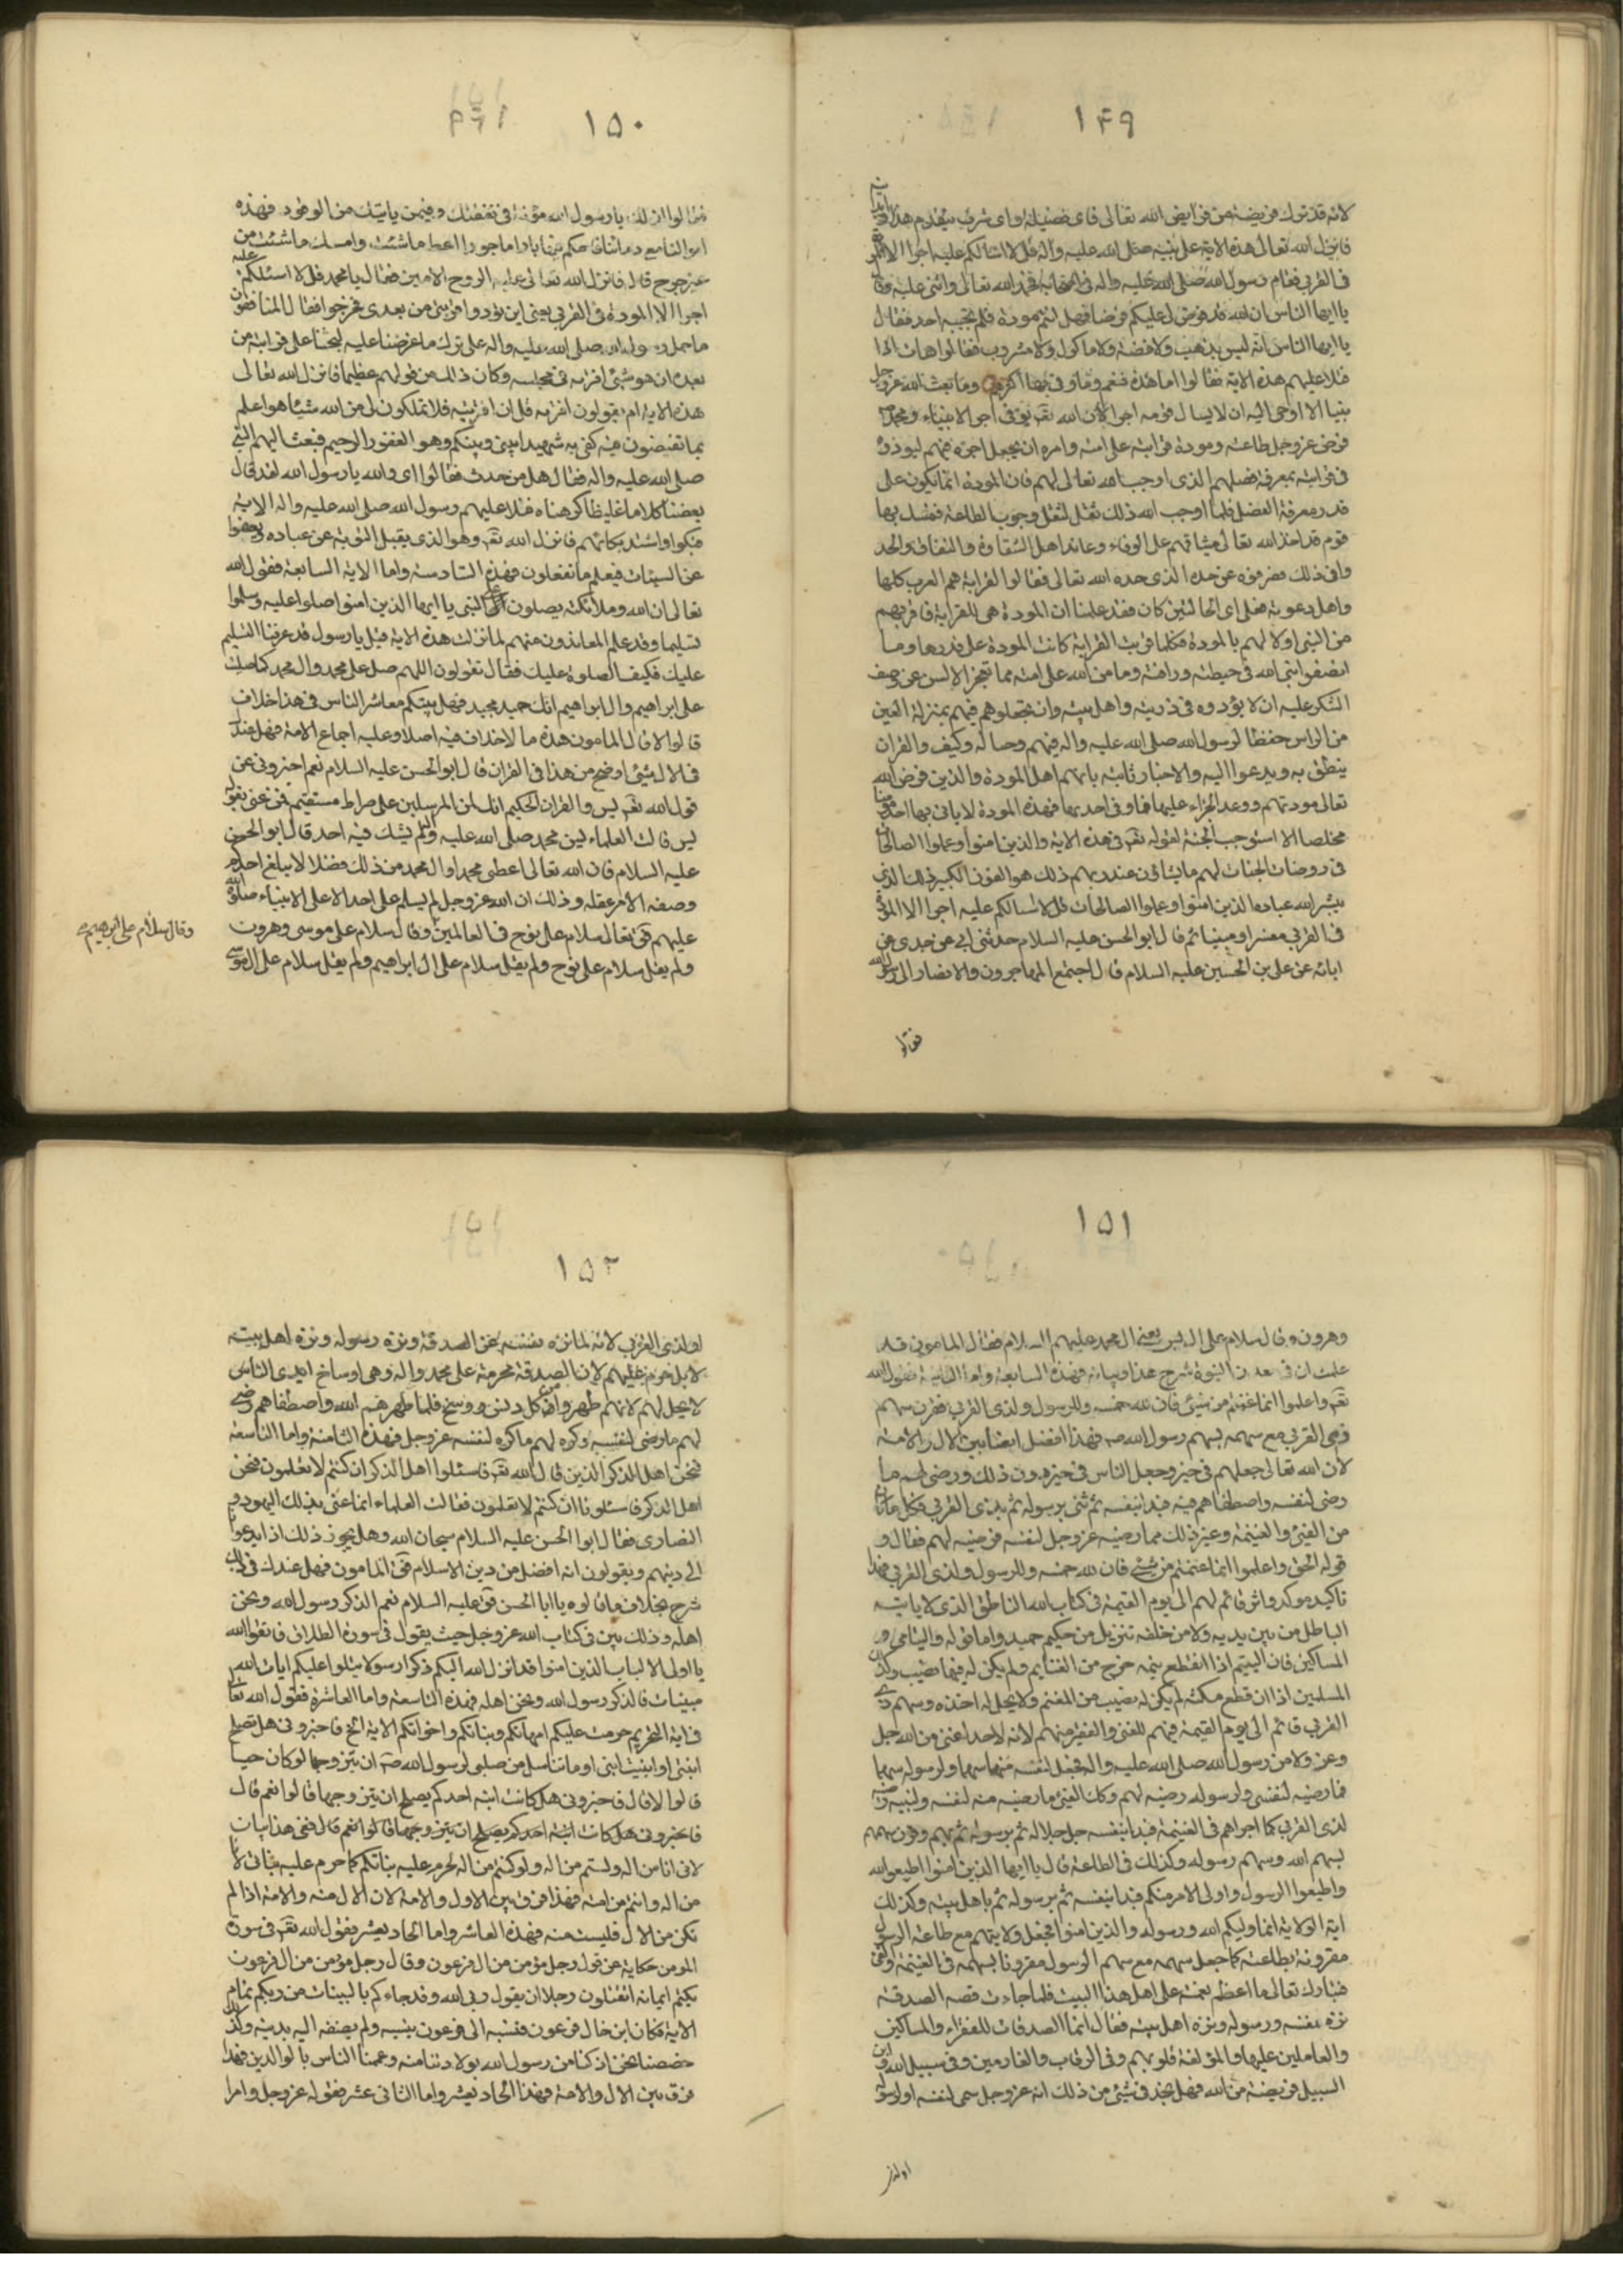 ١٤٩
لانه قد ترك فريضة من فرايض الله تعالى فاى فضيلة واى شرف يتقدم هذا
فانزل الله تعالى هذه الاية على نبيه صلى الله عليه وآله قل لا اسالكم عليه اجرا الا المودة
فى القربى فقام رسول الله صلى الله عليه واله فى اصحابه فحمد الله تعالى واثنى عليه وقال
يا ايها الناس ان الله قد فرض لى عليكم فرضا فهل انتم مؤدوه فلم يجبه احد فقال
يا ايها الناس انه ليس بذهب ولا فضة ولا ماكول ولا مشروب فقالوا هات اذا
فتلا عليهم هذه الاية فقالوا اما هذه فنعم وما وفى بها اكثرهم وما بعث الله عز وجل
نبيا الا اوحى اليه ان لا يسال قومه اجرا لان الله تعـ يوفى اجر الانبياء ومحمد
فرض عز وجل طاعته ومودة قرابته على امته وامره ان يجعل اجره فيهم ليؤدوه
فى قرابته بمعرفة فضلهم الذى اوجب الله تعالى لهم فان المودة انما يكون على
قدر معرفة الفضل فلما اوجب الله ذلك ثقل لثقل وجوب الطاعة فتمسك بها
قوم قد اخذ الله تعالى ميثاقهم على الوفاء وعاند اهل الشقاوة والنفاق والحد
وا فى ذلك فصرفوه عن حده الذى حده الله تعالى فقالوا القرابة هم العرب كلها
واهل دعوته فعلى اى الحالتين كان فقد علمنا ان المودة هى للقرابة فاقربهم
من النبى اولاهم بالمودة فكلما قربت القرابة كانت المودة على قدرها وما
انصفوا نبى الله فى حيطته ورافته وما من الله على امته مما تعجز الالسن عن وصف
الشكر عليه ان لا يؤدوه فى ذريته واهل بيته وان يجعلوهم فيهم بمنزلة العين
من الراس حفظا لرسول الله صلى الله عليه واله فيهم وحبا له وكيف والقران
ينطق به ويدعوا اليه والاخبار ثابتة بانهم اهل المودة والذين فرض الله
تعالى مودتهم ووعد الجزاء عليها فما وفى احد بها فهذه المودة لا ياتى بها احد مؤمنا
مخلصا الا استوجب الجنة لقوله تعـ فى هذه الاية والذين امنوا وعملوا الصالحات
فى روضات الجنات لهم ما يشاؤن عند ربهم ذلك هو الفوز الكبير ذلك الذى
يبشر الله عباده الذين امنوا وعملوا الصالحات قل لا اسالكم عليه اجرا الا المودة
فى القربى مفسرا ومبينا ثم قال ابو الحسن عليه السلام حدثنى ابى عن جدى عن
ابائه عن على بن الحسين عليه السلام قال اجتمع المهاجرون والانصار الى رسول الله
فقالوا
١٥٠
فقالوا ان لك يا رسول الله مؤنة فى نفقتك وفيمن ياتيك من الوفود فهذه
اموالنا مع دمائنا فاحكم فيها بارا ماجورا اعط ما شئت وامسك ما شئت من
غير حرج قال فانزل الله تعالى عليه الروح الامين فقال يا محمد قل لا اسئلكم عليه
اجرا الا المودة فى القربى يعنى ان تؤدوا قرابتى من بعدى فخرجوا فقال المنافقون
ما حمل رسول الله صلى الله عليه واله على ترك ما عرضنا عليه ليحثنا على قرابته من
بعده ان هو شئ افتراه فى مجلسه وكان ذلك من قولهم عظيما فانزل الله تعالى
هذه الاية ام يقولون افتريه قل ان افتريته فلا تملكون لى من الله شيئا هو اعلم
بما تفيضون فيه كفى به شهيدا بينى وبينكم وهو الغفور الرحيم فبعث اليهم النبى
صلى الله عليه واله فقال هل من حدث فقالوا اى والله يا رسول الله لقد قال
بعضنا كلاما غليظا كرهناه فتلا عليهم رسول الله صلى الله عليه واله الاية
فبكوا واشتد بكائهم فانزل الله تعـ وهو الذى يقبل التوبة عن عباده ويعفوا
عن السيئات فيعلم ما تفعلون فهذه السادسة واما الاية السابعة فقول الله
تعالى ان الله وملائكته يصلون على النبى يا ايها الذين امنوا صلوا عليه وسلموا
تسليما وقد علم المعاندون منهم لما نزلت هذه الاية قيل يا رسول قد عرفنا التسليم
عليك فكيف الصلوة عليك فقال تقولون اللهم صل على محمد وال محمد كما صليت
على ابراهيم وال ابراهيم انك حميد مجيد فهل بينكم معاشر الناس فى هذا خلاف
قالوا لا قال المامون هذه ما لا خلاف فيه اصلا وعليه اجماع الامة فهل عندك
فى الال شئ اوضح من هذا فى القران قال ابو الحسن عليه السلام نعم اخبرونى عن
قول الله تعـ يس والقران الحكيم انك لمن المرسلين على صراط مستقيم فمن عنى بقوله
يس قالت العلماء يس محمد صلى الله عليه ولم يشك فيه احد قال ابو الحسن
عليه السلام فان الله تعالى اعطى محمدا وال محمد من ذلك فضلا لا يبلغ احد
وصفه الا من عقله وذلك ان الله عز وجل لم يسلم على احد الا على الانبياء صلوة الله
عليهم فقـ تعالى سلام على نوح فى العالمين وقال سلام على موسى وهرون
وقال سلام على ابرهيم
ولم يقل سلام على نوح ولم يقل سلام على ال ابراهيم ولم يقل سلام على ال موسى
١٥١
وهرون وقال سلام على ال يس يعنى ال محمد عليهم السلام فقال المامون قد
علمت ان فى معدن النبوة شرح هذا وبيانه فهذه السابعة واما الثامنة فقول الله
تعـ واعلموا انما غنمتم من شئ فان لله خمسه وللرسول ولذى القربى فقرن سهم
ذى القربى مع سهمه بسهم رسول الله صـ فهذا فضل ايضا بين الال والامة
لان الله تعالى جعلهم فى حيز وجعل الناس فى حيز دون ذلك ورضى لهم ما
رضى لنفسه واصطفاهم فيه فبدا بنفسه ثم ثنى برسوله ثم بذى القربى فكل ما كان
من الفئ والغنيمة وغير ذلك مما رضيه عز وجل لنفسه فرضيه لهم فقال و
قوله الحق واعلموا انما غنمتم من شئ فان لله خمسه وللرسول ولذى القربى فهذا
تاكيد موكد واثر قائم لهم الى يوم القيمة فى كتاب الله الناطق الذى لا ياتيه
الباطل من بين يديه ولا من خلفه تنزيل من حكيم حميد واما قوله واليتامى و
المساكين فان اليتيم اذا انقطع يتمه خرج من الغنايم ولم يكن له فيها نصيب وكذلك
المسكين اذا انقطع مسكنته لم يكن له نصيب من المغنم ولا يحل له اخذه وسهم ذى
القربى قائم الى يوم القيمة فيهم للغنى والفقير منهم لانه لا احد اغنى من الله جل
وعز ولا من رسول الله صلى الله عليه واله فجعل لنفسه منها سهما ولرسوله سهما
فما رضيه لنفسه ولرسوله رضيه لهم وكذلك الفئ ما رضيه منه لنفسه ولنبيه رضيه
لذى القربى كما اجراهم فى الغنيمة فبدا بنفسه جل جلاله ثم برسوله ثم بهم وقرن سهمهم
بسهم الله وسهم رسوله وكذلك فى الطاعة قال يا ايها الذين امنوا اطيعوا الله
واطيعوا الرسول واولى الامر منكم فبدا بنفسه ثم برسوله ثم باهل بيته وكذلك
اية الولاية انما وليكم الله ورسوله والذين امنوا فجعل ولايتهم مع طاعة الرسول
مقرونة بطاعته كما جعل سهمه مع سهم الرسول مقرونا بسهمه فى الغنيمة والفئ
فتبارك تعالى ما اعظم نعمته على اهل هذا البيت فلما جاءت قصه الصدقة
نزه نفسه ورسوله ونزه اهل بيته فقال انما الصدقات للفقراء والمساكين
والعاملين عليها والمؤلفة قلوبهم وفى الرقاب والغارمين وفى سبيل الله وابن
السبيل فريضة من الله فهل تجد فى شئ من ذلك انه عز وجل سمى لنفسه او لرسوله
او لذى
١٥٢
او لذى القربى لانه لما نزه نفسه عن الصدقة ونزه رسوله ونزه اهل بيته
لا بل حرم عليهم لان الصدقة محرمة على محمد واله وهى اوساخ ايدى الناس
لا يحل لهم لانهم طهروا من كل دنس ووسخ فلما طهرهم الله واصطفاهم رضى
لهم ما رضى لنفسه وكره لهم ما كره لنفسه عز وجل فهذه الثامنة واما التاسعة
فنحن اهل الذكر الذين قال الله تعـ فاسئلوا اهل الذكر ان كنتم لا تعلمون فنحن
اهل الذكر فاسئلونا ان كنتم لا تعلمون فقالت العلماء انما عنى بذلك اليهود و
النصارى فقال ابو الحسن عليه السلام سبحان الله وهل يجوز ذلك اذا يدعونا
الى دينهم ويقولون انه افضل من دين الاسلام فقـ المامون فهل عندك فى ذلك
شرح بخلاف ما قالوه يا ابا الحسن فقـ عليه السلام نعم الذكر رسول الله ونحن
اهله وذلك بين فى كتاب الله عز وجل حيث يقول فى سورة الطلاق فاتقوا الله
يا اولى الالباب الذين امنوا قد انزل الله اليكم ذكرا رسولا يتلوا عليكم ايات الله
مبينات فالذكر رسول الله ونحن اهله فهذه التاسعة واما العاشرة فقول الله تعالى
فى اية التحريم حرمت عليكم امهاتكم وبناتكم واخواتكم الاية الخ فاخبرونى هل تصلح
ابنتى او ابنت ابنى او ما تناسل من صلبى لرسول الله صـ ان يتزوجها لو كان حيا
قالوا لا قال فاخبرونى هل كانت ابنة احدكم يصلح ان يتزوجها قالوا نعم قال
فاخبرونى هل كانت ابنة احدكم يصلح ان يتزوجها قالوا نعم قال ففى هذا بيان
لانى انا من اله ولستم من اله ولو كنتم من اله لحرم عليه بناتكم كما حرم عليه بناتى لانا
من اله وانتم من امته فهذا فرق بين الاول والامة لان الال منه والامة اذا لم
تكن من الال فليست منه فهذه العاشر واما الحاديعشر فقول الله تعـ فى سورة
المومن حكاية عن قول رجل مؤمن من ال فرعون وقال رجل مؤمن من ال فرعون
يكتم ايمانه اتقتلون رجلا ان يقول ربى الله وقد جاءكم بالبينات من ربكم تمام
الاية فكان ابن خال فرعون فنسبه الى فرعون بنسبه ولم يضفه اليه بدينه وكذلك
خصصنا نحن اذ كنا من رسول الله بولادتنا منه وعمنا الناس بالدين فهذا
فرق بين الال والامة فهذا الحاديعشر واما الثانى عشر فقوله عز وجل وامر